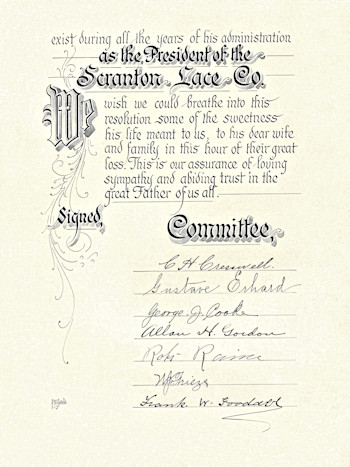 exist during all the years of his administration
as the President of the
Scranton Lace Co.
We wish we could breathe into this
resolution some of the sweetness
his life meant to us, to his dear wife
and family in this hour of their great
loss. This is our assurance of loving
sympathy and abiding trust in the
great Father of us all.
Signed, Committee,
C H Cresswell.
Gustave Erhard
George J. Cooke
Allan H. Gordon
Robt
Frank W.